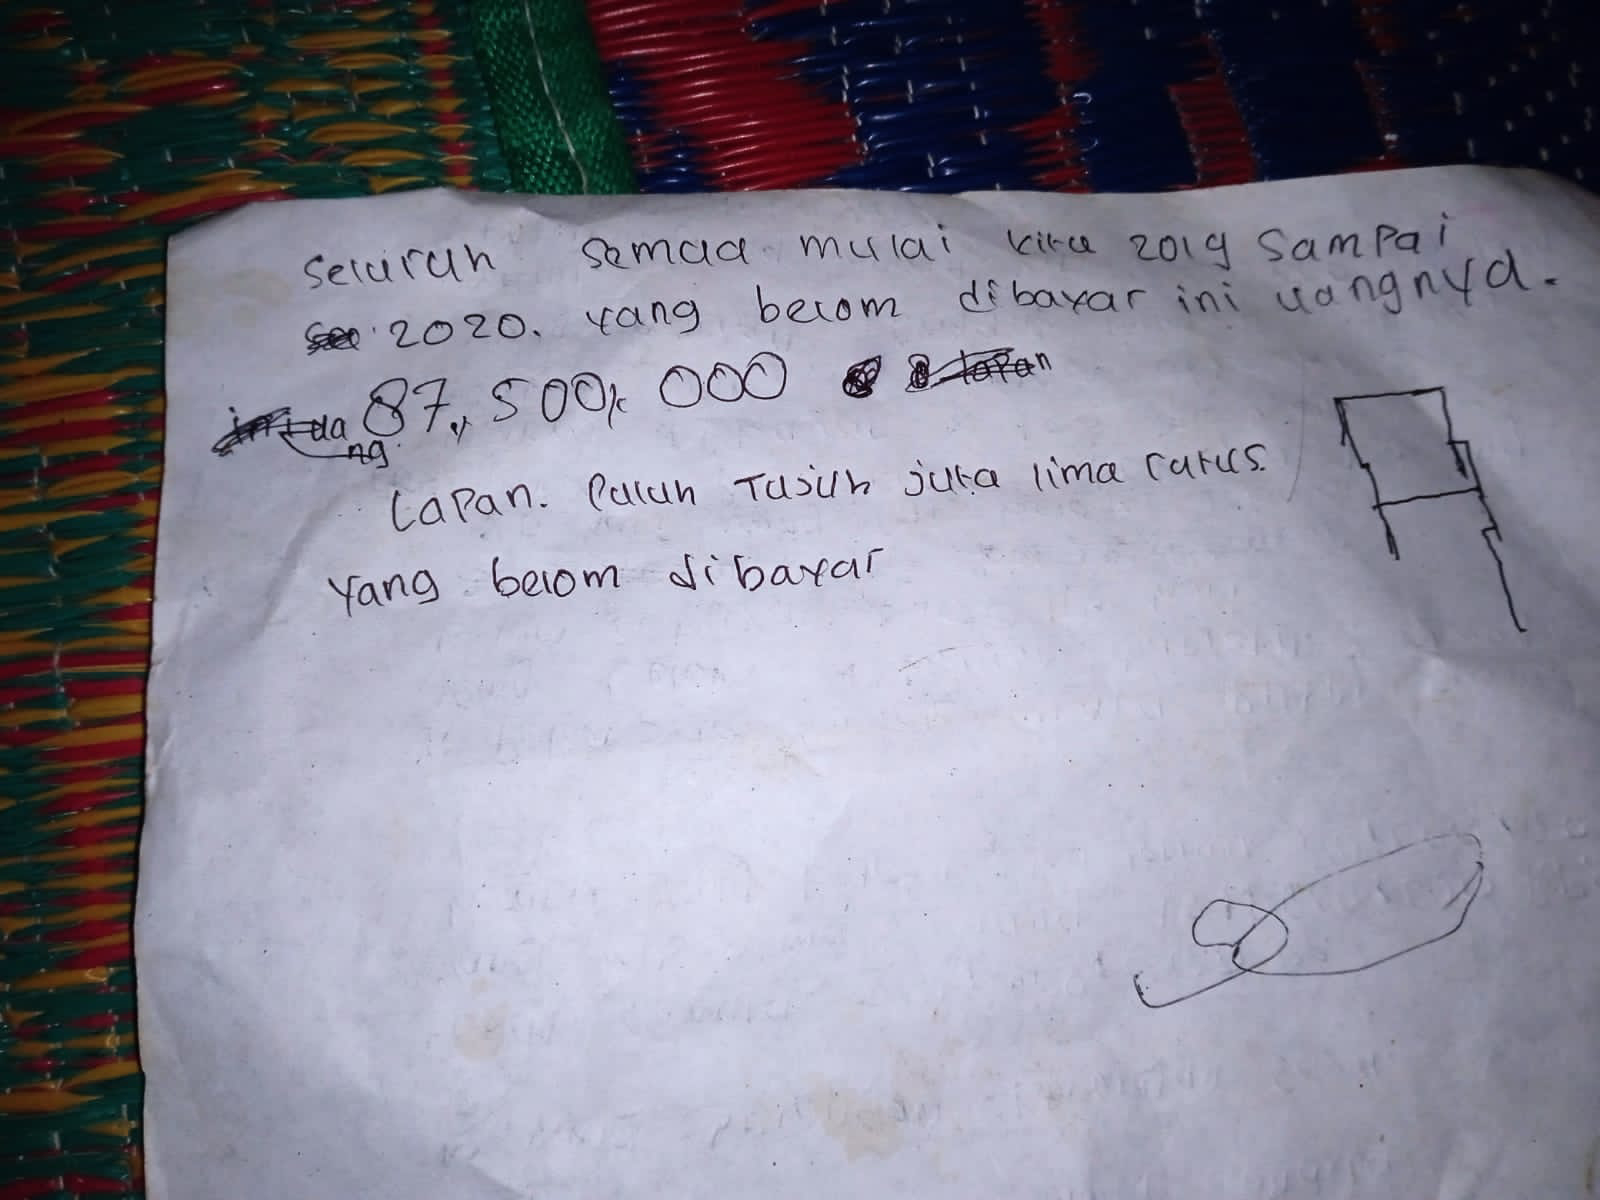 Seluruh semua mulai kita 2019 Sampai
2020. yang belom dibayar ini uangnya.
uang 87,500,000
Lapan. Puluh Tujuh juta lima ratus.
Yang belom dibayar